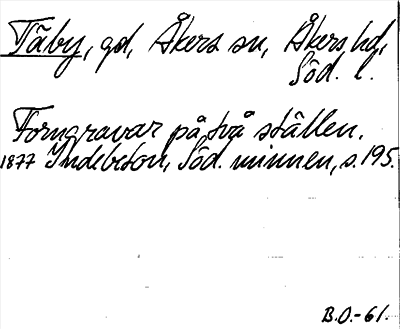 Täby, gd, Åkers sn, Åkers hd,
Söd. l.
Forngravar på två ställen.
1877 Indebetou, Söd. minnen, s. 195.
B.O.-61.